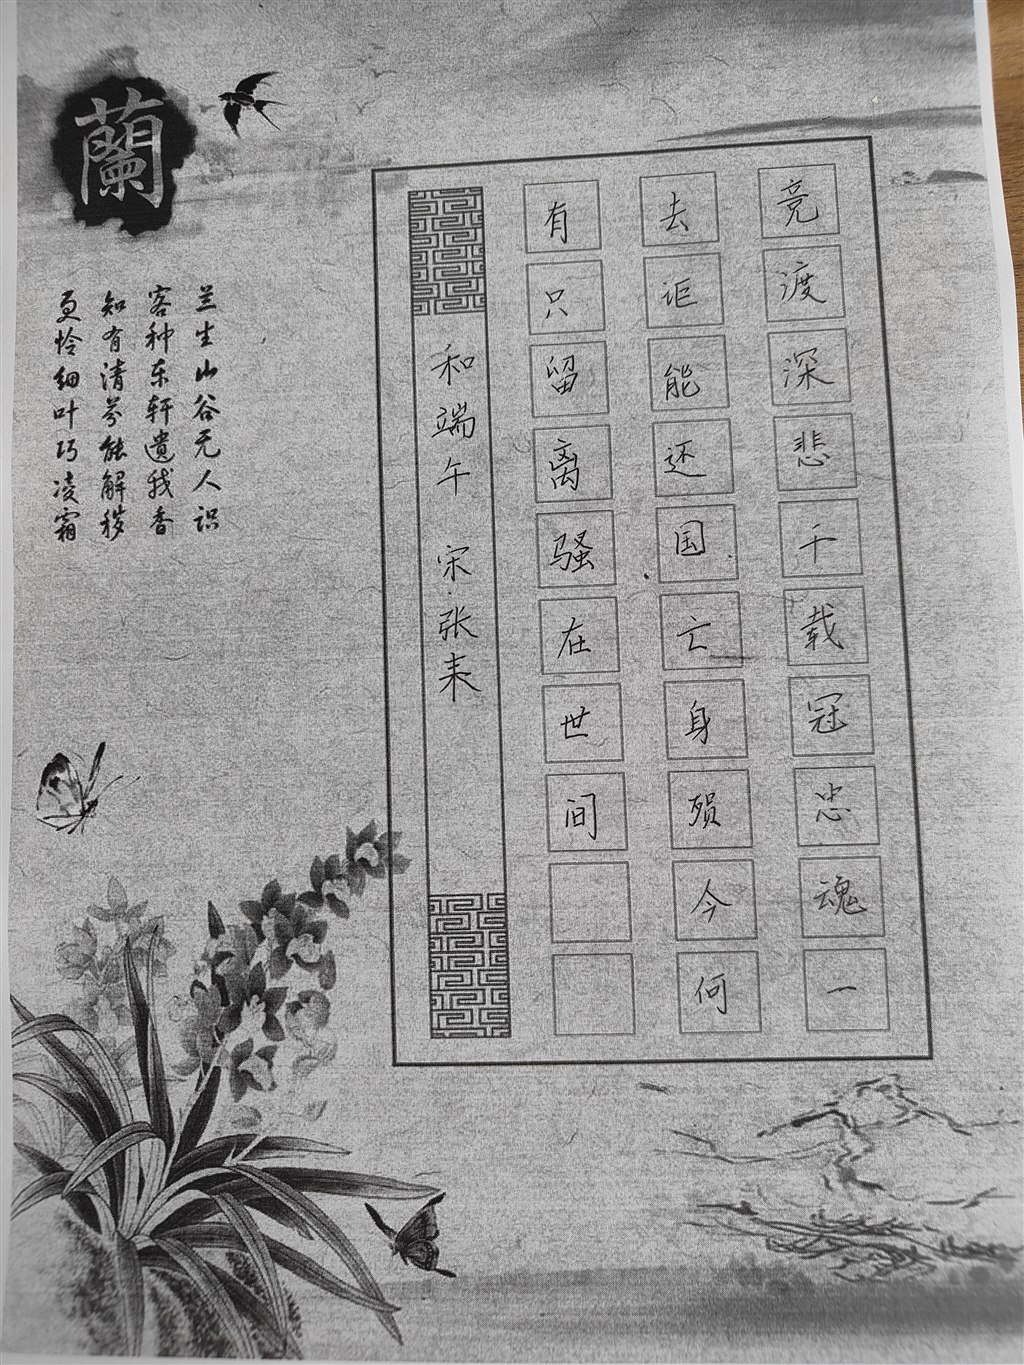 竞渡深悲千载冠忠魂一
去讵能还国亡身殒今何
有只留离骚在世间
和端午 宋 张耒
蘭
兰生山谷无人识
客种东轩遗我香
知有清芬能解秽
更怜细叶巧凌霜